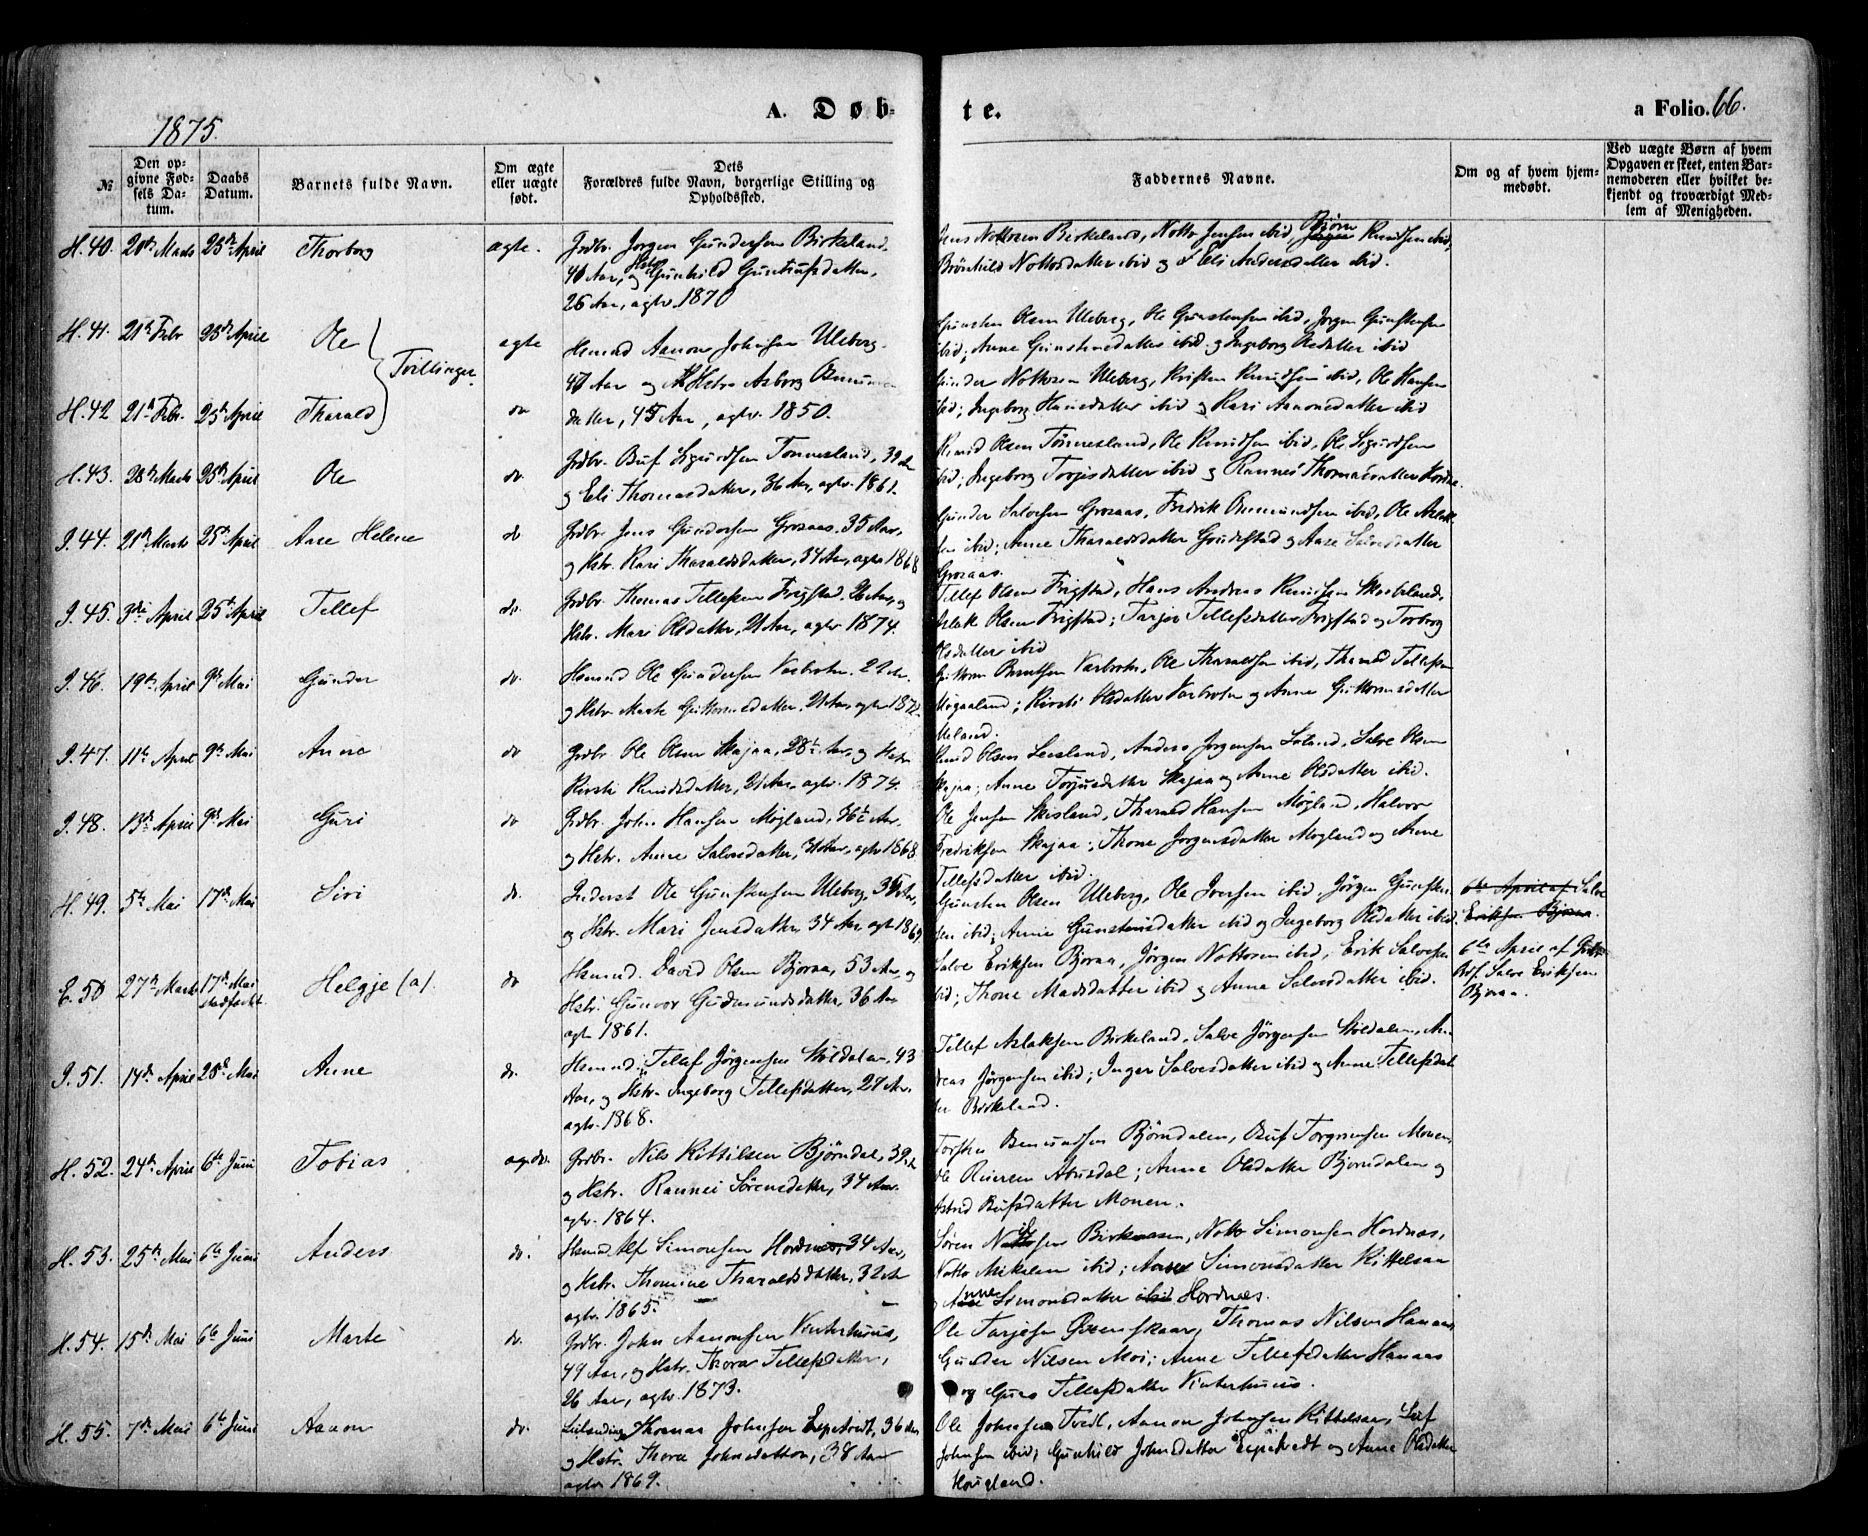 1875.
A. Døb-
te.
a Folio. 66.
№
Den op-
givne Fød-
sels Da-
tum.
Daabs
Datum.
Barnets fulde Navn.
Om ægte
eller uægte
født.
Dets
Forældres fulde Navn, borgerlige Stilling og
Opholdssted.
Faddernes Navne.
Om og af hvem hjem-
medøbt.
Ved uægte Børn af hvem
Opgaven er skeet, enten Bar-
nemoderen eller hvilket be-
kjendt og troværdigt Med-
lem af Menigheden.
H. 40. 20de Marts 25de April Thorborg ægte. Grdbr. Jørgen Gundersen Birkeland,
40 Aar, og Hstr Gunhild Guntulfsdatter,
26 Aar, agtv. 1870
Jens Nottosen Birkeland, Notto Jensen ibid, Bjørn Knudsen ibid,
Brønhild Nottosdatter ibid og Eli Andersdatter ibid.
H. 41. 21de Febr 25de April Ole Tvillinger ægte Hsmnd Aanon Johnsen Uleberg
47 Aar og Hstr Asborg Omunds
H. 42 21de Febr. 25de April Tharald do datter, 45 Aar, agtv. 1850.
Gunsten Olsen Uleberg, Ole Gunstensen ibid, Jørgen Gunstensen
ibid; Anne Gunstensdatter ibid og Ingeborg Olsdatter ibid
Gunder Nottosen Uleberg, Kristen Knudsen ibid, Ole Hansen
ibid; Ingeborg Hansdatter ibid og Kari Aanonsdatter ibid
H. 43. 28de Marts 25de April Ole do. Grdbr. Buf Sigurdsen Tønnesland, 39 Aar
og Eli Thomasdatter, 36 Aar, agtv. 1861.
Knud Olsen Tønnesland, Ole Knudsen ibid, Ole Sigurdsen
ibid; Ingeborg Torjusdatter ibid og Rannei Thomasdatter
I. 44. 21de Marts 25de April Aase Helene do Grdbr. Jens Gundersen Grosaas, 35 Aar,
og Hstr. Kari Tharaldsdatter, 34 Aar, agtv 1868
Gunder Salvesen Grosaas, Fredrik Omundsen ibid, Ole Aslak-
sen ibid; Anne Tharaldsdatter og Aase Salvesdatter
Grosaas.
I. 45. 3die April 25de April Tellef do. Grdbr. Thomas Tellefsen Frigstad, 26 Aar, og
Hstr. Mari Olsdatter, 21 Aar, agtv 1874.
Tellef Olsen Frigstad, Hans Andreas Knudsen
Aslak Olsen Frigstad; Tarjer Tellefsdatter Frigstad og Torborg
Olsdatter ibid
I. 46. 19de April 9de Mai Gunder do. Hsmnd Ole Gundersen Vasboten. 22 Aar.
og Hstr Marte Guttormsdatter, 21 Aar, agtv 1872.
Guttorm Vasboten, Ole Tharaldsen ibid, Tharald Tellefsen
; Kirsti Olsdatter Vasboten og Anne Guttormsdatter
I. 47. 11te April 9de Mai Anne do Grdbr. Ole Olsen Skajaa, 28 Aar, og Hstr
Kirsti Knudsdatter, 21 Aar, agtv. 1874.
Knud Olsen Leesland, Anders Jørgensen, Salve Olsen
Skajaa; Anne Torjusdatter Skajaa og Anne Olsdatter ibid.
I. 48. 13de April 9de Mai Guri do Grdbr. John Hansen Møgland, 36 Aar.
og Hstr. Anne Salvesdatter, 31 Aar, agtv 1868
Ole Jensen Skisland, Tharald Hansen Møgland, Halvor
Fredriksen Skajaa; Thone Jørgensdatter Mogland og Anne
Tellefsdatter ibid.
H. 49. 5te Mai 17de Mai Siri do. Inderst Ole Gunstensen Uleberg, 35 Aar,
og Hstr. Mari Jensdatter, 34 Aar agtv 1869
Gunsten Olsen Uleberg, Ole Iversen ibid, Jørgen Gunsten-
sen ibid; Anne Gunstensdatter ibid og Ingeborg Olsdatter ibid.
6te April af Salve
Eriksen Bjoraa.
E. 50 27de Marts 17de Mai
stadfæstet Helgje (a). do Hsmnd. David Olsen Bjoraa, 53 Aar og
Hstr. Gunvor Gudmundsdatter, 36 Aar
agtv 1861.
Salve Eriksen Bjoraa, Jørgen Nottosen ibid, Erik Salvesen
ibid; Thone Madsdatter ibid og Anna Salvesdatter ibid.
6te April af
Salve Eriksen
Bjoraa.
I. 51. 14de April 28de Mai Anne do. Hsmnd. Tellef Jørgensen Støldalen, 43
Aar, og Hstr. Ingeborg Tellefsdatter, 27 Aar.
agtv. 1868.
Tellef Aslaksen Birkeland, Salve Jørgensen Støldalen, An-
dreas Jørgensen ibid; Inger Salvesdatter ibid og Anne Tellefsdat-
ter Birkeland.
H. 52. 24de April 6te Juni Tobias ægte. Grdbr. Nils Kittilsen Bjørndal, 39
og Hstr. Rannei Sörensdatter, 34 Aar.
agtv. 1864.
Torsten Omundsen Bjørndalen, Buf Torgrimsen Monen,
Ole Reiersen Abusdal; Anne Olsdatter Bjorndalen og
Astrid Bufsdatter Monen.
H. 53. 25de Mai 6te Juni Anders do. Hsmnd Alf Simonsen Hordnæs, 34 Aar,
og Hstr. Thomine Tharaldsdatter, 32 Aar
agtv. 1865.
Søren Birknæsen, Notto Simonsen Hordnæs,
Notto Mikelsen ibid; Anne Simonsdatter Kittelsaa
og Anne Simonsdatter ibid Hordnæs.
H. 54. 15de Mai 6te Juni Marte do. Grdbr. John Aanonsen Vinterhuus,
49 Aar, og Hstr. Thora Tellefsdatter,
26 Aar, agtv. 1873.
Ole Tarjesen, Thomas Nilsen Hanaas,
Gunder Nilsen Moi; Anne Tellefsdatter Hanaas
og Guro Tellefsdatter Vinterhuus.
H. 55. 7de Mai 6te Juni Aanon do. Leilending Thomas Johnsen Espetvedt, 36 Aar
og Hstr. Thora Johnsdatter, 38 Aar
agtv 1869.
Ole Johnsen Tvedt, Aanon Johnsen Kittelsaa, Leif
Johnsen ibid; Gunhild Johnsdatter Espetvedt og Anne Olsdatter
Hougland.